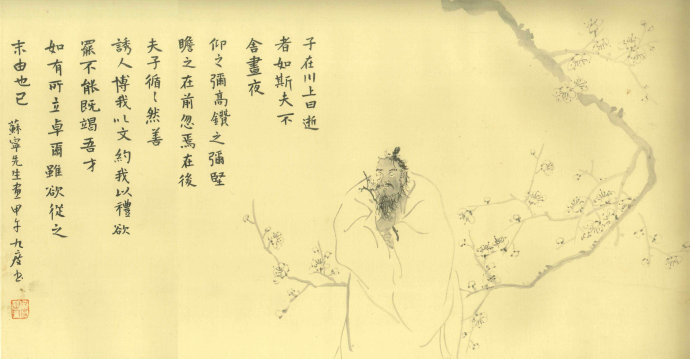 子在川上曰逝
者如斯夫不
舍晝夜
仰之彌高鑽之彌堅
瞻之在前忽焉在後
夫子循〻然善
誘人博我以文約我以禮欲
罷不能既竭吾才
如有所立卓爾雖欲從之
末由也已
蘇寧先生畫甲午九度书